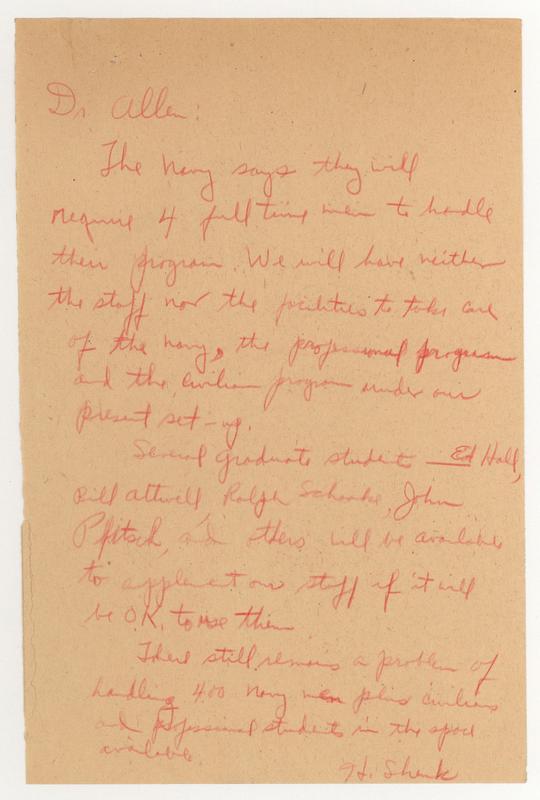 Dr Allen:
The Navy says they will
require 4 full time men to handle
their program. We will have neither
the staff nor the facilities to take care
of the navy, the professional program
and the civilian program under our
present set-up.
Several graduate students — Ed Hall,
Bill Attwell, Ralph Schenke, John
Pfitsch, and others will be available
to supplement our staff if it will
be O.K. to use them
There still remains a problem of
handling 400 Navy men plus civilians
and professional students in the space
available.
H. Shenk